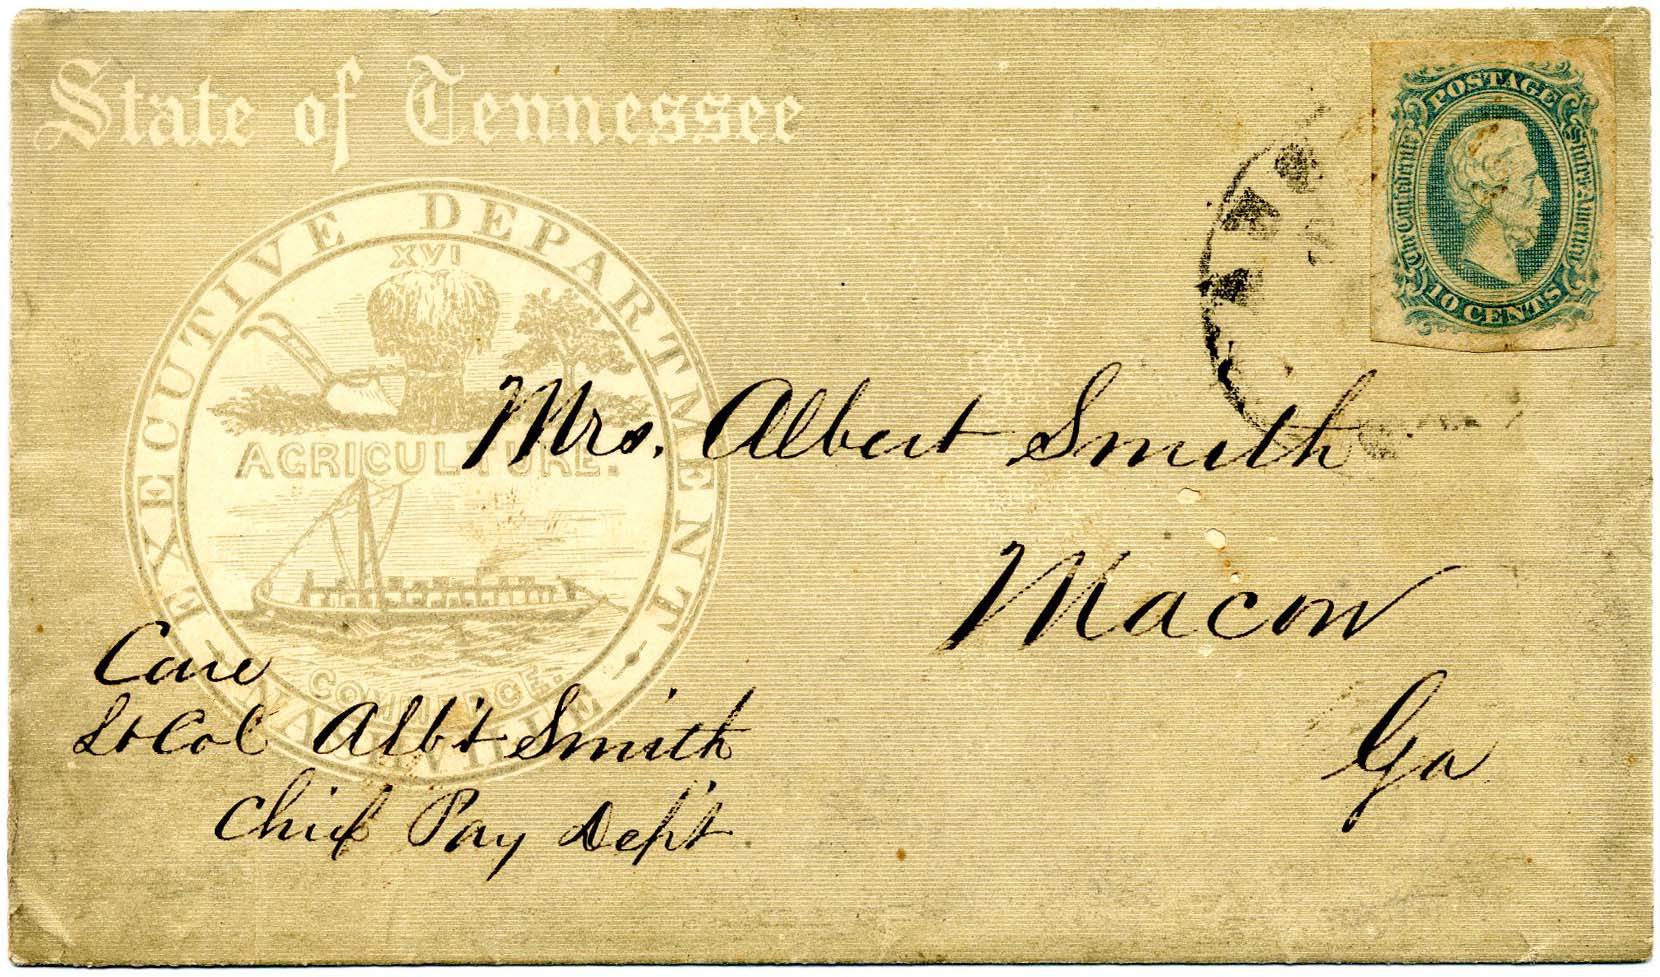 State of Tennessee
EXECUTIVE DEPARTMENT
NASHVILLE
XVI
AGRICULTURE.
COMMERCE.
POSTAGE
The Confederate States of America
10 CENTS
Mrs. Albert Smith
Macon
Ga
Care
Lt Col Albt Smith
Chief Pay Dept